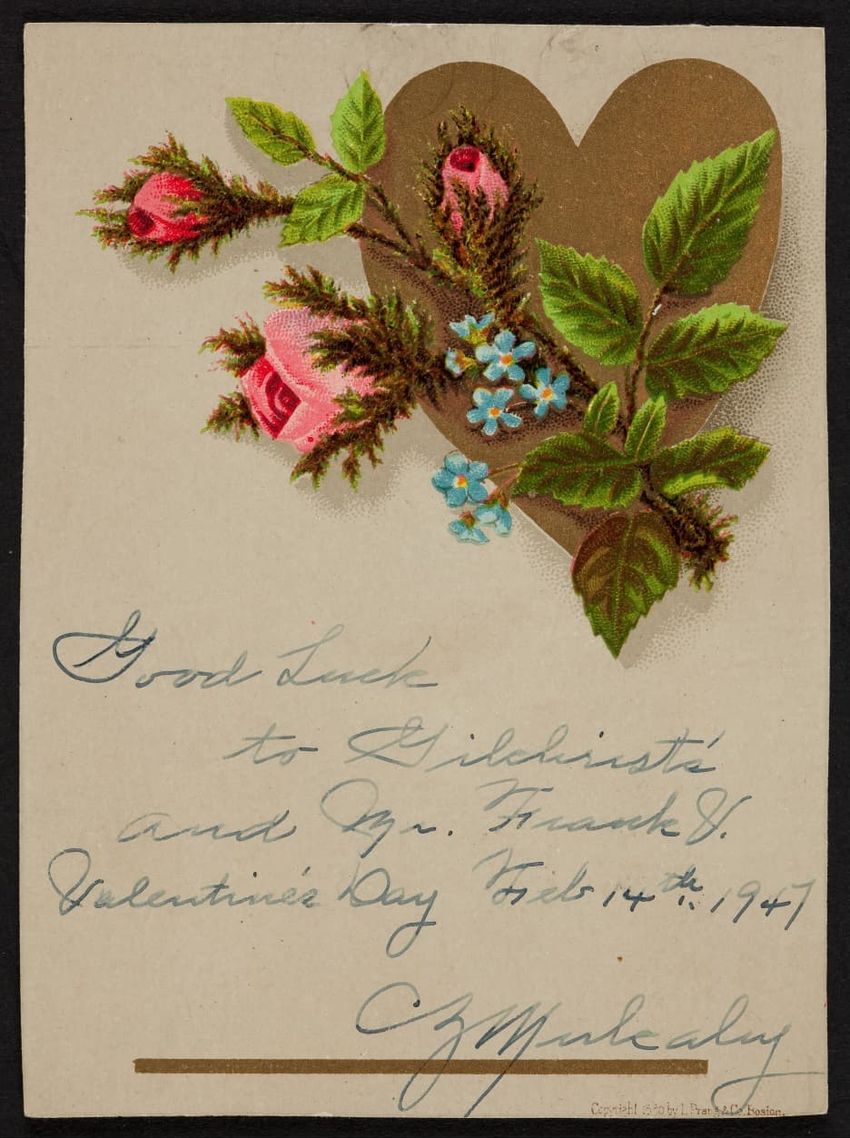 Good Luck
to Gilchrist's
and Mr. Frank V.
Valentine's Day Feb 14th, 1947
Mulcahy
Copyright by L. Prang & Co. Boston.